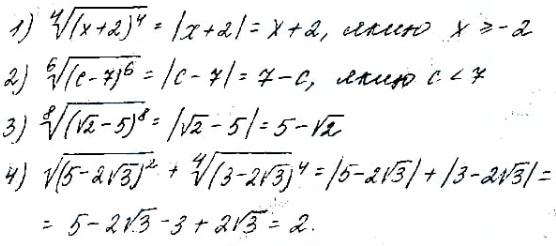 1) ⁴√(x+2)⁴ = |x+2| = x+2, якщо x ≥ -2
2) ⁶√(c-7)⁶ = |c-7| = 7-c, якщо c < 7
3) ⁸√(√2-5)⁸ = |√2-5| = 5-√2
4) √(5-2√3)² + ⁴√(3-2√3)⁴ = |5-2√3| + |3-2√3| =
= 5-2√3-3+2√3 = 2.